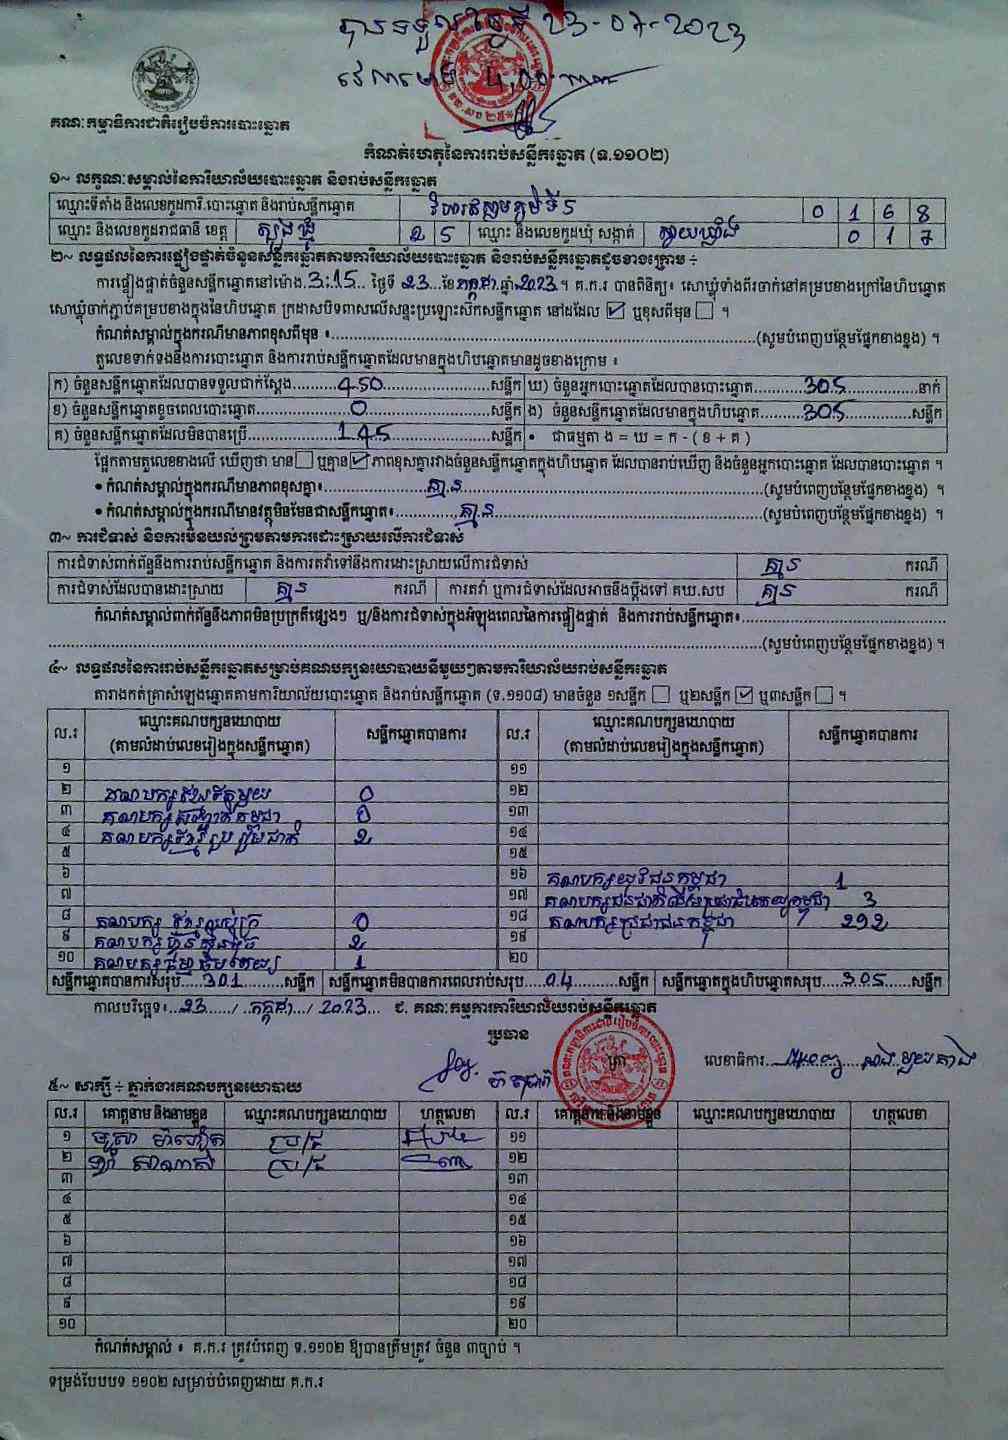 បានទទួលថ្ងៃទី 23-07-2023
វេលាម៉ោង 4,00
គណៈកម្មាធិការជាតិរៀបចំការបោះឆ្នោត
កំណត់ហេតុនៃការរាប់សន្លឹកឆ្នោត (ទ.១១០២)
១~ លក្ខណៈសម្គាល់នៃការិយាល័យបោះឆ្នោត និងរាប់សន្លឹកឆ្នោត
ឈ្មោះទីតាំង និងលេខកូដការិ.បោះឆ្នោត និងរាប់សន្លឹកឆ្នោត 0 1 6 8
ឈ្មោះ និងលេខកូដរាជធានី ខេត្ត ត្បូងឃ្មុំ 2 5 ឈ្មោះ និងលេខកូដឃុំ សង្កាត់ ស្វាយឃ្លាំង 0 1 7
២~ លទ្ធផលនៃការផ្ទៀងផ្ទាត់ចំនួនសន្លឹកឆ្នោតតាមការិយាល័យបោះឆ្នោត និងរាប់សន្លឹកឆ្នោតដូចខាងក្រោម ÷
ការផ្ទៀងផ្ទាត់ចំនួនសន្លឹកឆ្នោតនៅម៉ោង 3:15 ថ្ងៃទី 23 ខែ កក្កដា ឆ្នាំ 2023។ គ.ក.រ បានពិនិត្យ៖ សោឃ្លុំទាំងពីរចាក់នៅគម្របខាងក្រៅនៃហិបឆ្នោត
សោឃ្លុំចាក់ភ្ជាប់គម្របខាងក្នុងនៃហិបឆ្នោត ក្រដាសបិទពាសលើសន្ទះប្រឡោះស៊កសន្លឹកឆ្នោត នៅដដែល ☑ ឬខុសពីមុន ☐ ។
កំណត់សម្គាល់ក្នុងករណីមានភាពខុសពីមុន ៖ (សូមបំពេញបន្ថែមផ្នែកខាងខ្នង) ។
តួលេខទាក់ទងនឹងការបោះឆ្នោត និងការរាប់សន្លឹកឆ្នោតដែលមានក្នុងហិបឆ្នោតមានដូចខាងក្រោម ៖
ក) ចំនួនសន្លឹកឆ្នោតដែលបានទទួលជាក់ស្តែង 450 សន្លឹក ឃ) ចំនួនអ្នកបោះឆ្នោតដែលបានបោះឆ្នោត 305 នាក់
ខ) ចំនួនសន្លឹកឆ្នោតខូចពេលបោះឆ្នោត 0 សន្លឹក ង) ចំនួនសន្លឹកឆ្នោតដែលមានក្នុងហិបឆ្នោត 305 សន្លឹក
គ) ចំនួនសន្លឹកឆ្នោតដែលមិនបានប្រើ 145 សន្លឹក • ជាធម្មតា ង = ឃ = ក - ( ខ + គ )
ផ្អែកតាមតួលេខខាងលើ ឃើញថា មាន ☐ ឬគ្មាន ☑ ភាពខុសគ្នារវាងចំនួនសន្លឹកឆ្នោតក្នុងហិបឆ្នោត ដែលបានរាប់ឃើញ និងចំនួនអ្នកបោះឆ្នោត ដែលបានបោះឆ្នោត ។
• កំណត់សម្គាល់ក្នុងករណីមានភាពខុសគ្នា៖ គ្មាន (សូមបំពេញបន្ថែមផ្នែកខាងខ្នង) ។
• កំណត់សម្គាល់ក្នុងករណីមានវត្ថុមិនមែនជាសន្លឹកឆ្នោត៖ គ្មាន (សូមបំពេញបន្ថែមផ្នែកខាងខ្នង) ។
៣~ ការជំទាស់ និងការមិនយល់ព្រមតាមការដោះស្រាយលើការជំទាស់
ការជំទាស់ពាក់ព័ន្ធនឹងការរាប់សន្លឹកឆ្នោត និងការតវ៉ាទៅនឹងការដោះស្រាយលើការជំទាស់ គ្មាន ករណី
ការជំទាស់ដែលបានដោះស្រាយ គ្មាន ករណី ការតវ៉ា ឬការជំទាស់ដែលអាចនឹងប្តឹងទៅ គឃ.សប គ្មាន ករណី
កំណត់សម្គាល់ពាក់ព័ន្ធនឹងភាពមិនប្រក្រតីផ្សេងៗ ឬ/និងការជំទាស់ក្នុងអំឡុងពេលនៃការផ្ទៀងផ្ទាត់ និងការរាប់សន្លឹកឆ្នោត៖
(សូមបំពេញបន្ថែមផ្នែកខាងខ្នង) ។
៤~ លទ្ធផលនៃការរាប់សន្លឹកឆ្នោតសម្រាប់គណបក្សនយោបាយនីមួយៗតាមការិយាល័យរាប់សន្លឹកឆ្នោត
តារាងកត់ត្រាសំឡេងឆ្នោតតាមការិយាល័យបោះឆ្នោត និងរាប់សន្លឹកឆ្នោត (ទ.១១០៨) មានចំនួន ១សន្លឹក ☐ ឬ២សន្លឹក ☑ ឬ៣សន្លឹក ☐ ។
ល.រ ឈ្មោះគណបក្សនយោបាយ សន្លឹកឆ្នោតបានការ ល.រ ឈ្មោះគណបក្សនយោបាយ សន្លឹកឆ្នោតបានការ
(តាមលំដាប់លេខរៀងក្នុងសន្លឹកឆ្នោត) (តាមលំដាប់លេខរៀងក្នុងសន្លឹកឆ្នោត)
១ ១១
២ គណបក្ស 0 ១២
៣ គណបក្ស កម្ពុជា 0 ១៣
៤ គណបក្ស 2 ១៤
៥ ១៥
៦ ១៦ គណបក្សយុវជនកម្ពុជា 1
៧ ១៧ គណបក្ស 3
៨ គណបក្ស 0 ១៨ គណបក្សប្រជាជនកម្ពុជា 292
៩ គណបក្សហ្វ៊ុនស៊ិនប៉ិច 2 ១៩
១០ គណបក្ស 1 ២០
សន្លឹកឆ្នោតបានការសរុប 301 សន្លឹក សន្លឹកឆ្នោតមិនបានការពេលរាប់សរុប 04 សន្លឹក សន្លឹកឆ្នោតក្នុងហិបឆ្នោតសរុប 305 សន្លឹក
កាលបរិច្ឆេទ៖ 23 / កក្កដា / 2023 ជ. គណៈកម្មការការិយាល័យរាប់សន្លឹកឆ្នោត
ប្រធាន
ត្រា
លេខាធិការ
៥~ សាក្សី ÷ ភ្នាក់ងារគណបក្សនយោបាយ
ល.រ គោត្តនាម និងនាមខ្លួន ឈ្មោះគណបក្សនយោបាយ ហត្ថលេខា ល.រ គោត្តនាម និងនាមខ្លួន ឈ្មោះគណបក្សនយោបាយ ហត្ថលេខា
១ ប្រ/ជ ១១
២ ប្រ/ជ ១២
៣ ១៣
៤ ១៤
៥ ១៥
៦ ១៦
៧ ១៧
៨ ១៨
៩ ១៩
១០ ២០
កំណត់សម្គាល់ ៖ គ.ក.រ ត្រូវបំពេញ ទ.១១០២ ឱ្យបានត្រឹមត្រូវ ចំនួន ៣ច្បាប់ ។
ទម្រង់បែបបទ ១១០២ សម្រាប់បំពេញដោយ គ.ក.រ